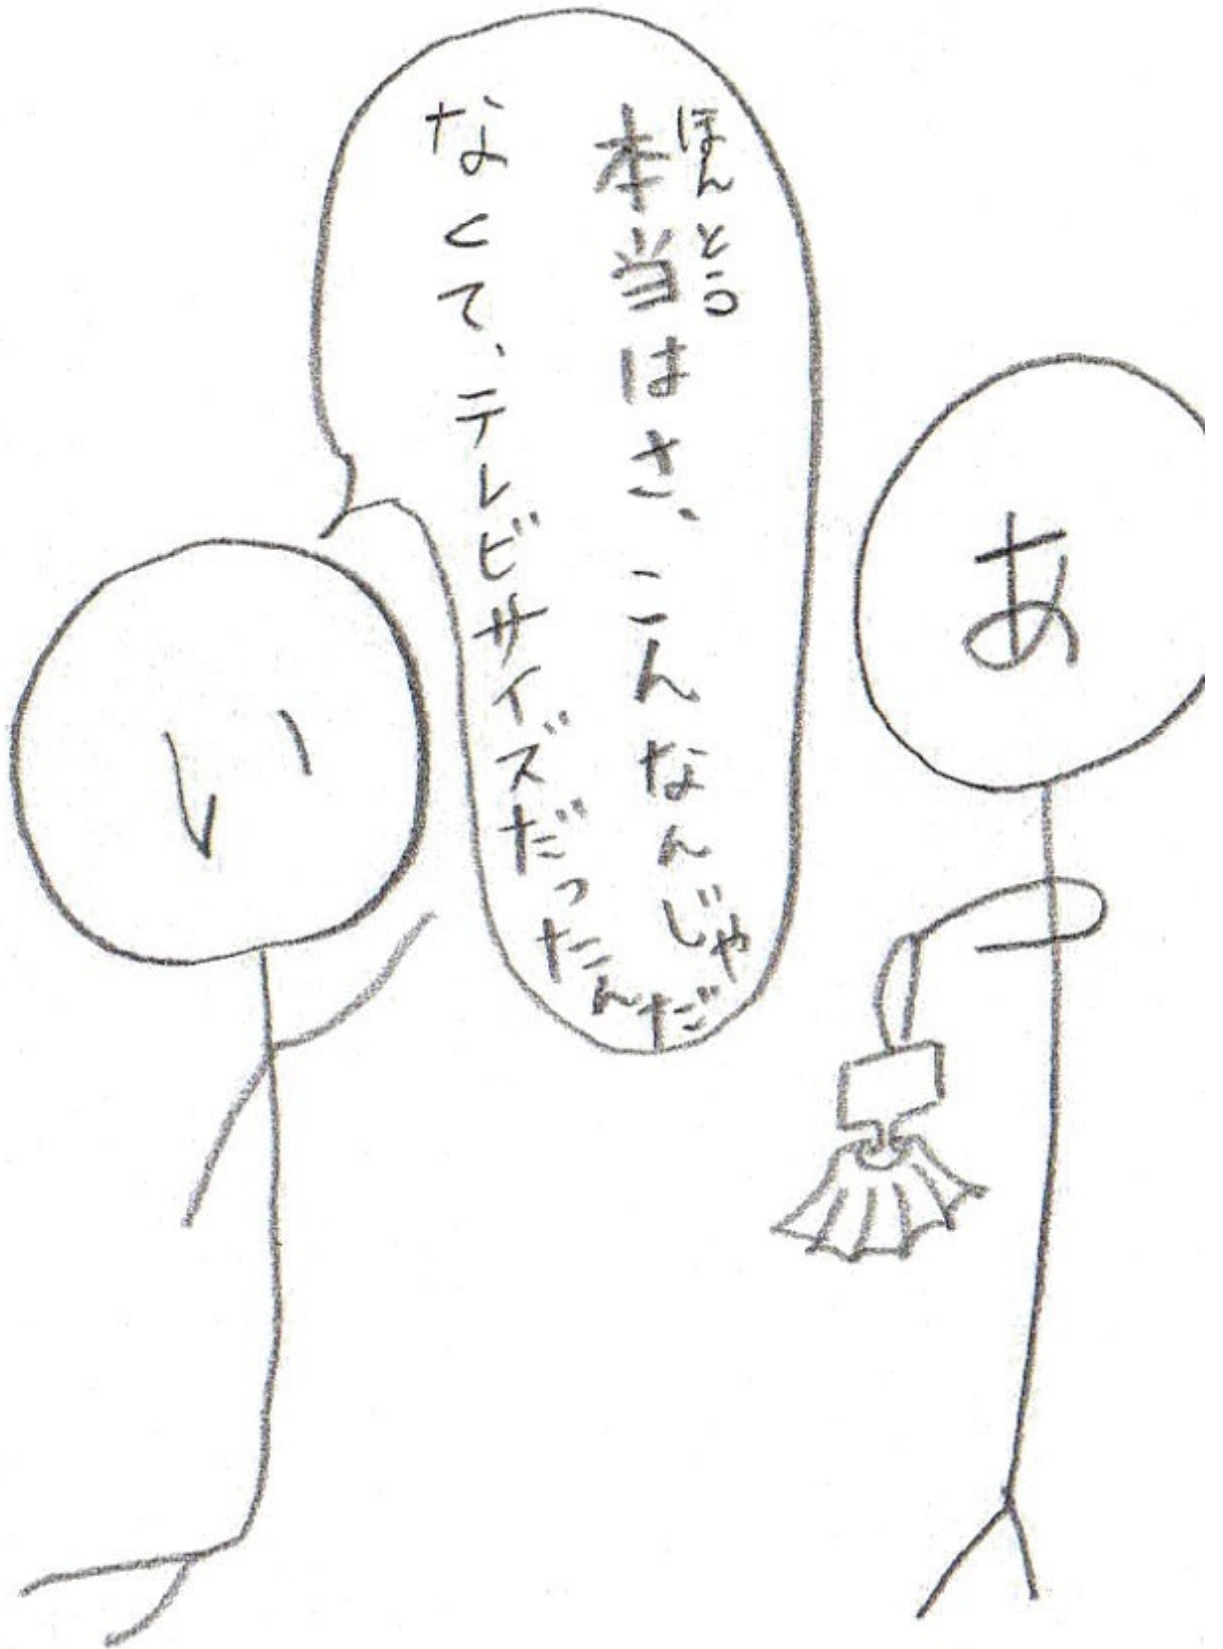 ほんとう
本当はさ、こんなんじゃ
なくて、テレビサイズだったんだ
あ
い